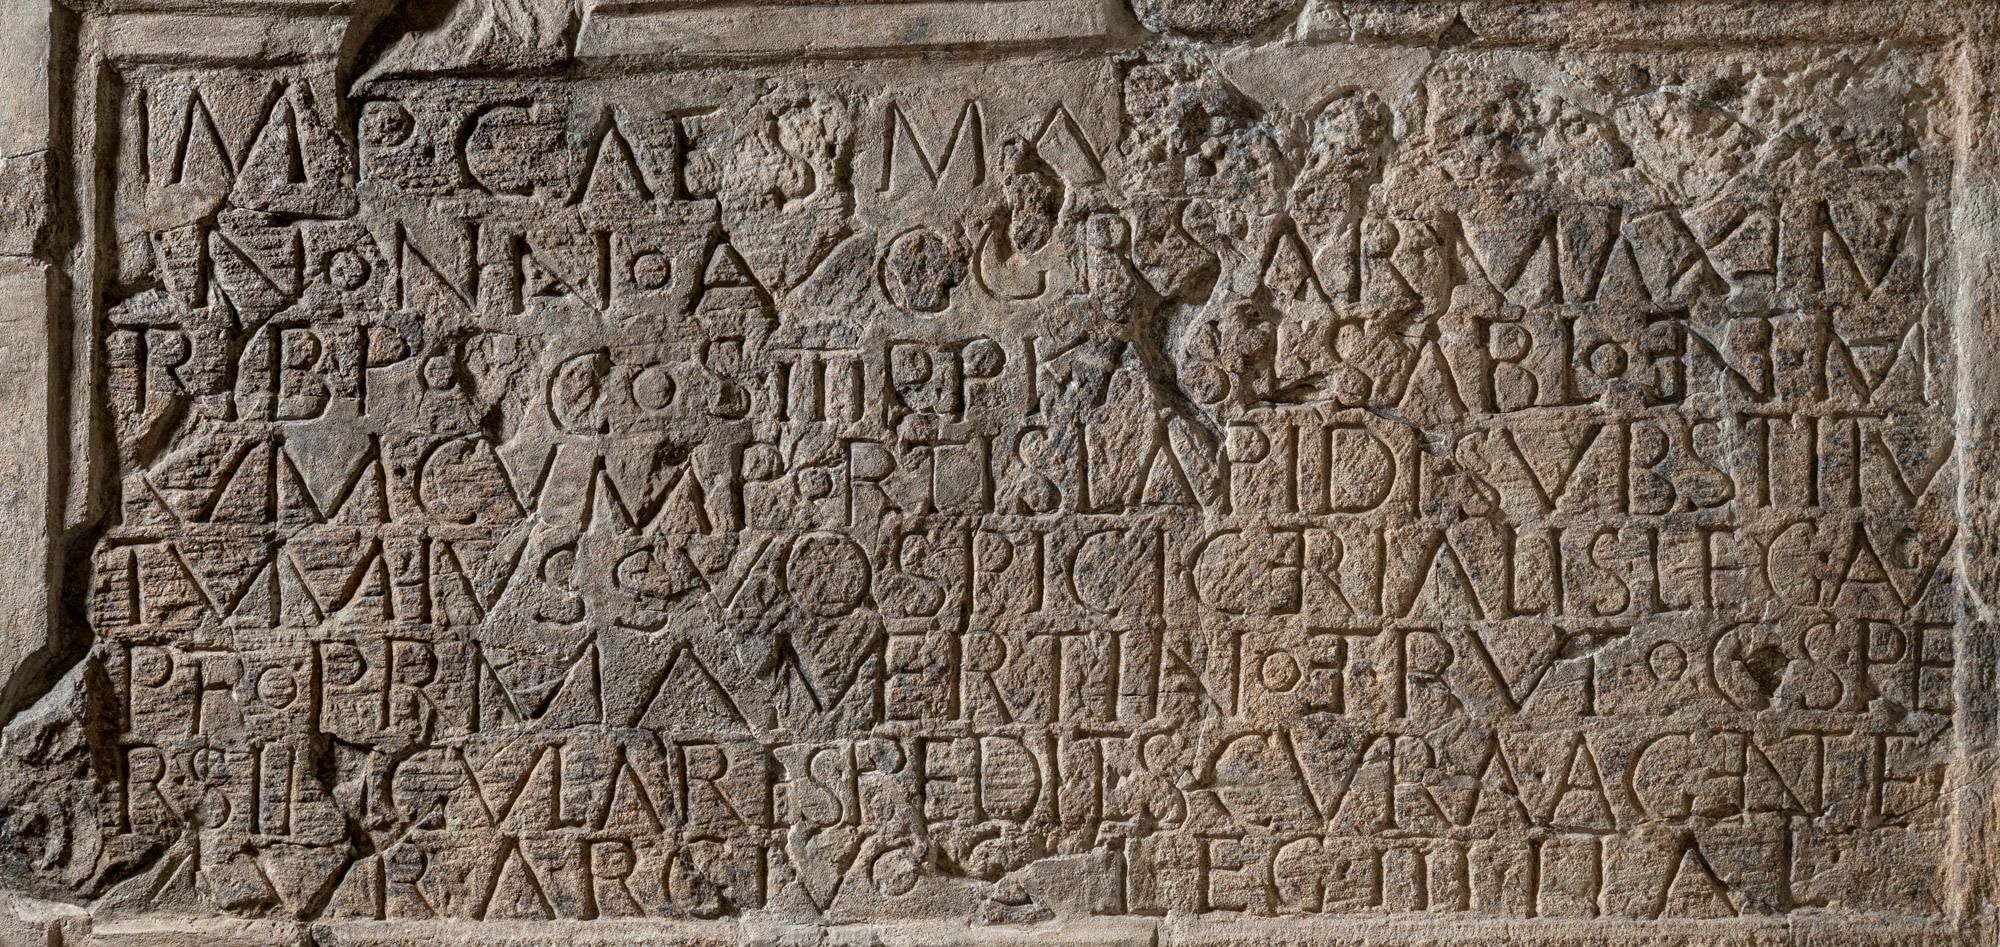 IMP CAES MA
NTONINO AVG GER SAR MAXIM
TRIB PO COS III P P KA EL SABLONET M
VRVM CVM PORTIS LAPIDI SVBSTITV
TVM IVSSV Q SPICI CERIALIS LEG AV
PRO PR MAMERTINO ET RVFO COS PE
R SINGVLARES PEDITES CVRA AGENTE
AVR ARGIVO LEG III ITAL